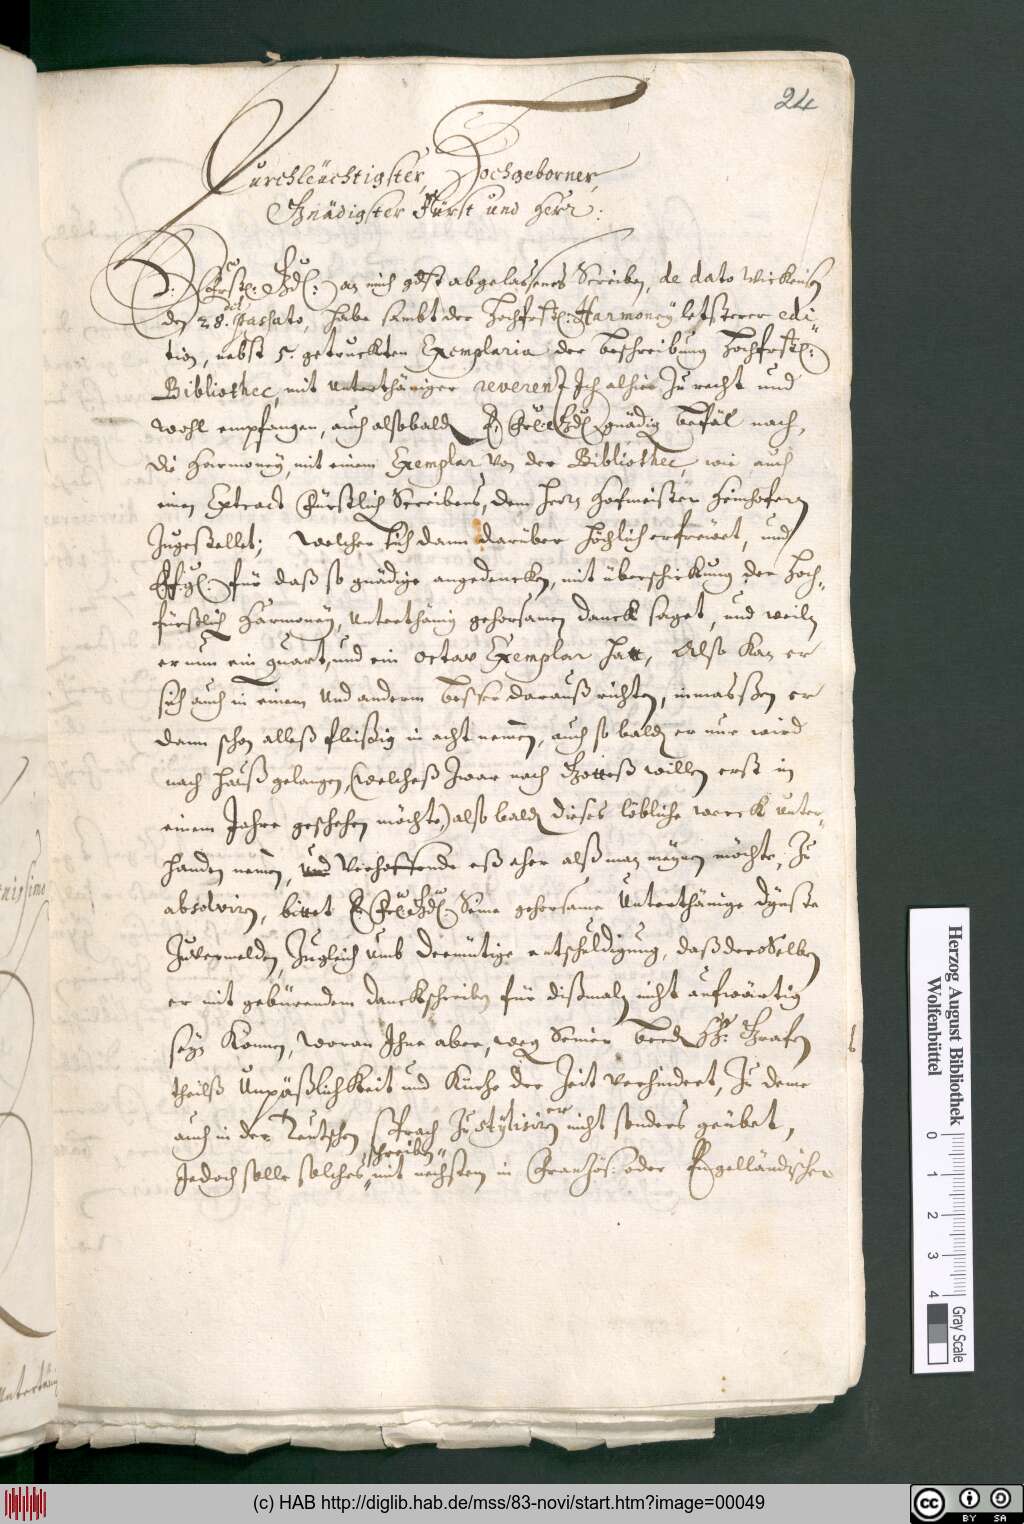 24
Durchleüchtigster, Hochgeborner,
Gnädigster Fürst und Herr:
an mich gdst abgelassenes Screiben, de dato Wickensen
den 28. passato, habe sambt der Hochfrstl: Harmoney letsterer edi
tion, nebst 5. getruckten Exemplaria der beschreibung Hochfrstl:
Bibliothec, mit unterthäniger reverentz Ich alhie zu recht und
wohl empfangen, auch alsobalde gnädig befäl nach,
die Harmoney, mit einem Exemplar von der Bibliothec wie auch
einen Extract fürstlich Screibens, dem Herrn Hofmeister Heinhofern
zugestellet; welcher sich dann darüber höchlich erfreiwet, und
für daß so gnädige angedencken, mit überschickung der Hoch-
fürstlich Harmoney, unterthänig gehorsamen danck saget, und weiln
er nun ein quart, und ein octav Exemplar hatt, Also kan er
sich auch in einem und anderm besser darauß richten, inmassen er
dann schon alleß fleissig in acht nemen, auch so bald er nur wird
nach hauß gelangen, (welcheß zwar nach Gotteß willen erst in
einem Jahre geschehen möchte,) also bald dieses löbliche werck unter-
handen nemen, und verhoffende eß eher alß man meynen möchte, zu
absolviren, bittet seine gehorsame unterthänige dienste
zuvermelden, zugleich umb demütige entschuldigung, daß deroselben
er mit gebürendem danckschreiben für dißmalen nicht aufwärtig
seyn können, woran Ihne aber, weg seiner beed HH: Grafen
theilß Unpäßlichkeit und Kürtze der Zeit verhindert, zu deme
auch in der Teutschen sprach zu stylisiren er nicht sonders geübet,
schreiben
Jedoch solle solches, mit nechstem in Frantzös: oder Engelländischer
nissimo
Untertänig
Herzog August Bibliothek
Wolfenbüttel
0 1 2 3 4
Gray Scale
(c) HAB http://diglib.hab.de/mss/83-novi/start.htm?image=00049
cc BY SA